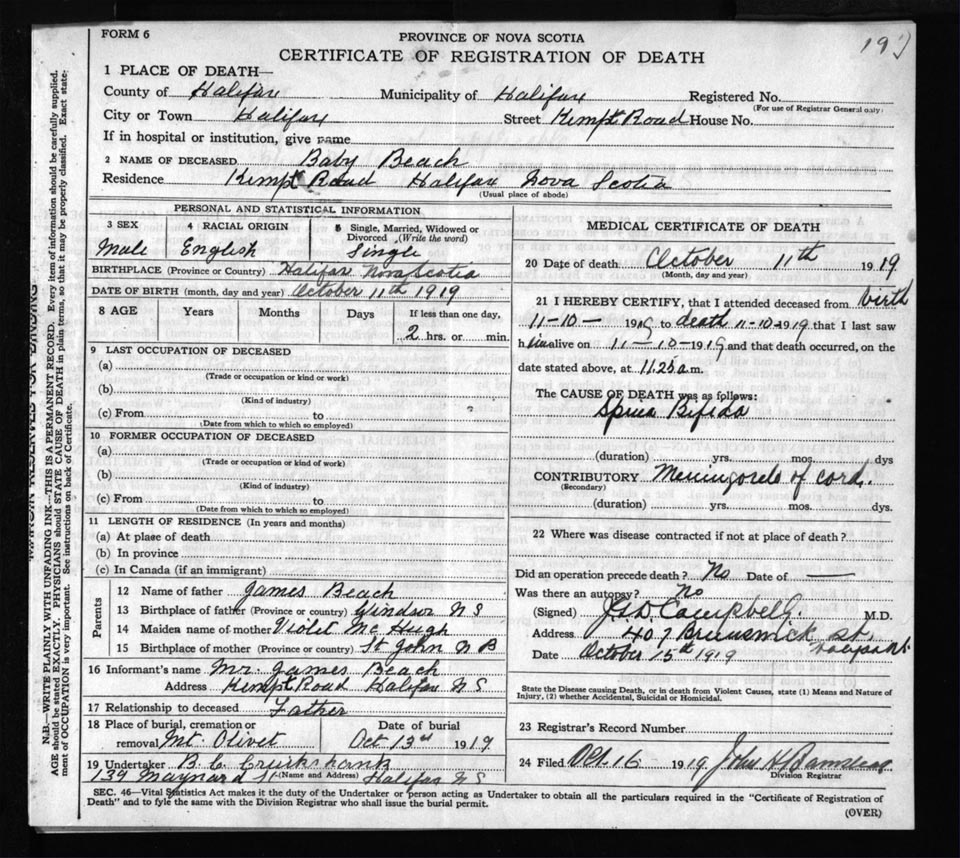 FORM 6
PROVINCE OF NOVA SCOTIA
CERTIFICATE OF REGISTRATION OF DEATH
1 PLACE OF DEATH—
County of Halifax Municipality of Halifax Registered No.
(For use of Registrar General only)
City or Town Halifax Street Kempt Road House No.
If in hospital or institution, give name
2 NAME OF DECEASED Baby Beach
Residence Kempt Road Halifax Nova Scotia
(Usual place of abode)
PERSONAL AND STATISTICAL INFORMATION
3 SEX 4 RACIAL ORIGIN 5 Single, Married, Widowed or Divorced (Write the word)
Male English Single
BIRTHPLACE (Province or Country) Halifax Nova Scotia
DATE OF BIRTH (month, day and year) October 11th 1919
8 AGE Years Months Days If less than one day,
2 hrs. or min.
9 LAST OCCUPATION OF DECEASED
(a)
(Trade or occupation or kind or work)
(b)
(Kind of industry)
(c) From to
(Date from which to which so employed)
10 FORMER OCCUPATION OF DECEASED
(a)
(Trade or occupation or kind of work)
(b)
(Kind of industry)
(c) From to
(Date from which to which so employed)
11 LENGTH OF RESIDENCE (In years and months)
(a) At place of death
(b) In province
(c) In Canada (if an immigrant)
Parents
12 Name of father James Beach
13 Birthplace of father (Province or country) Windsor N S
14 Maiden name of mother Violet Mc Hugh
15 Birthplace of mother (Province or country) St John N B
16 Informant's name Mr. James Beach
Address Kempt Road Halifax N S
17 Relationship to deceased Father
18 Place of burial, cremation or Date of burial
removal Mt. Olivet Oct 13rd 1919
19 Undertaker B. C. Cruikshank
139 Maynard St (Name and Address) Halifax N S
MEDICAL CERTIFICATE OF DEATH
20 Date of death October 11th 1919
(Month, day and year)
21 I HEREBY CERTIFY, that I attended deceased from birth
11-10- 1919 to death 11-10-1919 that I last saw
h im alive on 11-10-1919 and that death occurred, on the
date stated above, at 11.25 a.m.
The CAUSE OF DEATH was as follows:
Spina Bifida
(duration) yrs. mos. dys
CONTRIBUTORY Meningocele of cord.
(Secondary)
(duration) yrs. mos. dys.
22 Where was disease contracted if not at place of death?
Did an operation precede death? No Date of —
Was there an autopsy? No
(Signed) Campbell M.D.
Address 407 Brunswick St.
Date October 15th 1919
State the Disease causing Death, or in death from Violent Causes, state (1) Means and Nature of
Injury, (2) whether Accidental, Suicidal or Homicidal.
23 Registrar's Record Number
24 Filed Oct. 16 1919 John
Division Registrar
SEC. 46—Vital Statistics Act makes it the duty of the Undertaker or person acting as Undertaker to obtain all the particulars required in the "Certificate of Registration of
Death" and to fyle the same with the Division Registrar who shall issue the burial permit.
(OVER)
N.B.—WRITE PLAINLY WITH UNFADING INK—THIS IS A PERMANENT RECORD. Every item of information should be carefully supplied.
AGE should be stated EXACTLY. PHYSICIANS should STATE CAUSE OF DEATH in plain terms, so that it may be properly classified. Exact state-
ment of OCCUPATION is very important. See instructions on back of Certificate.